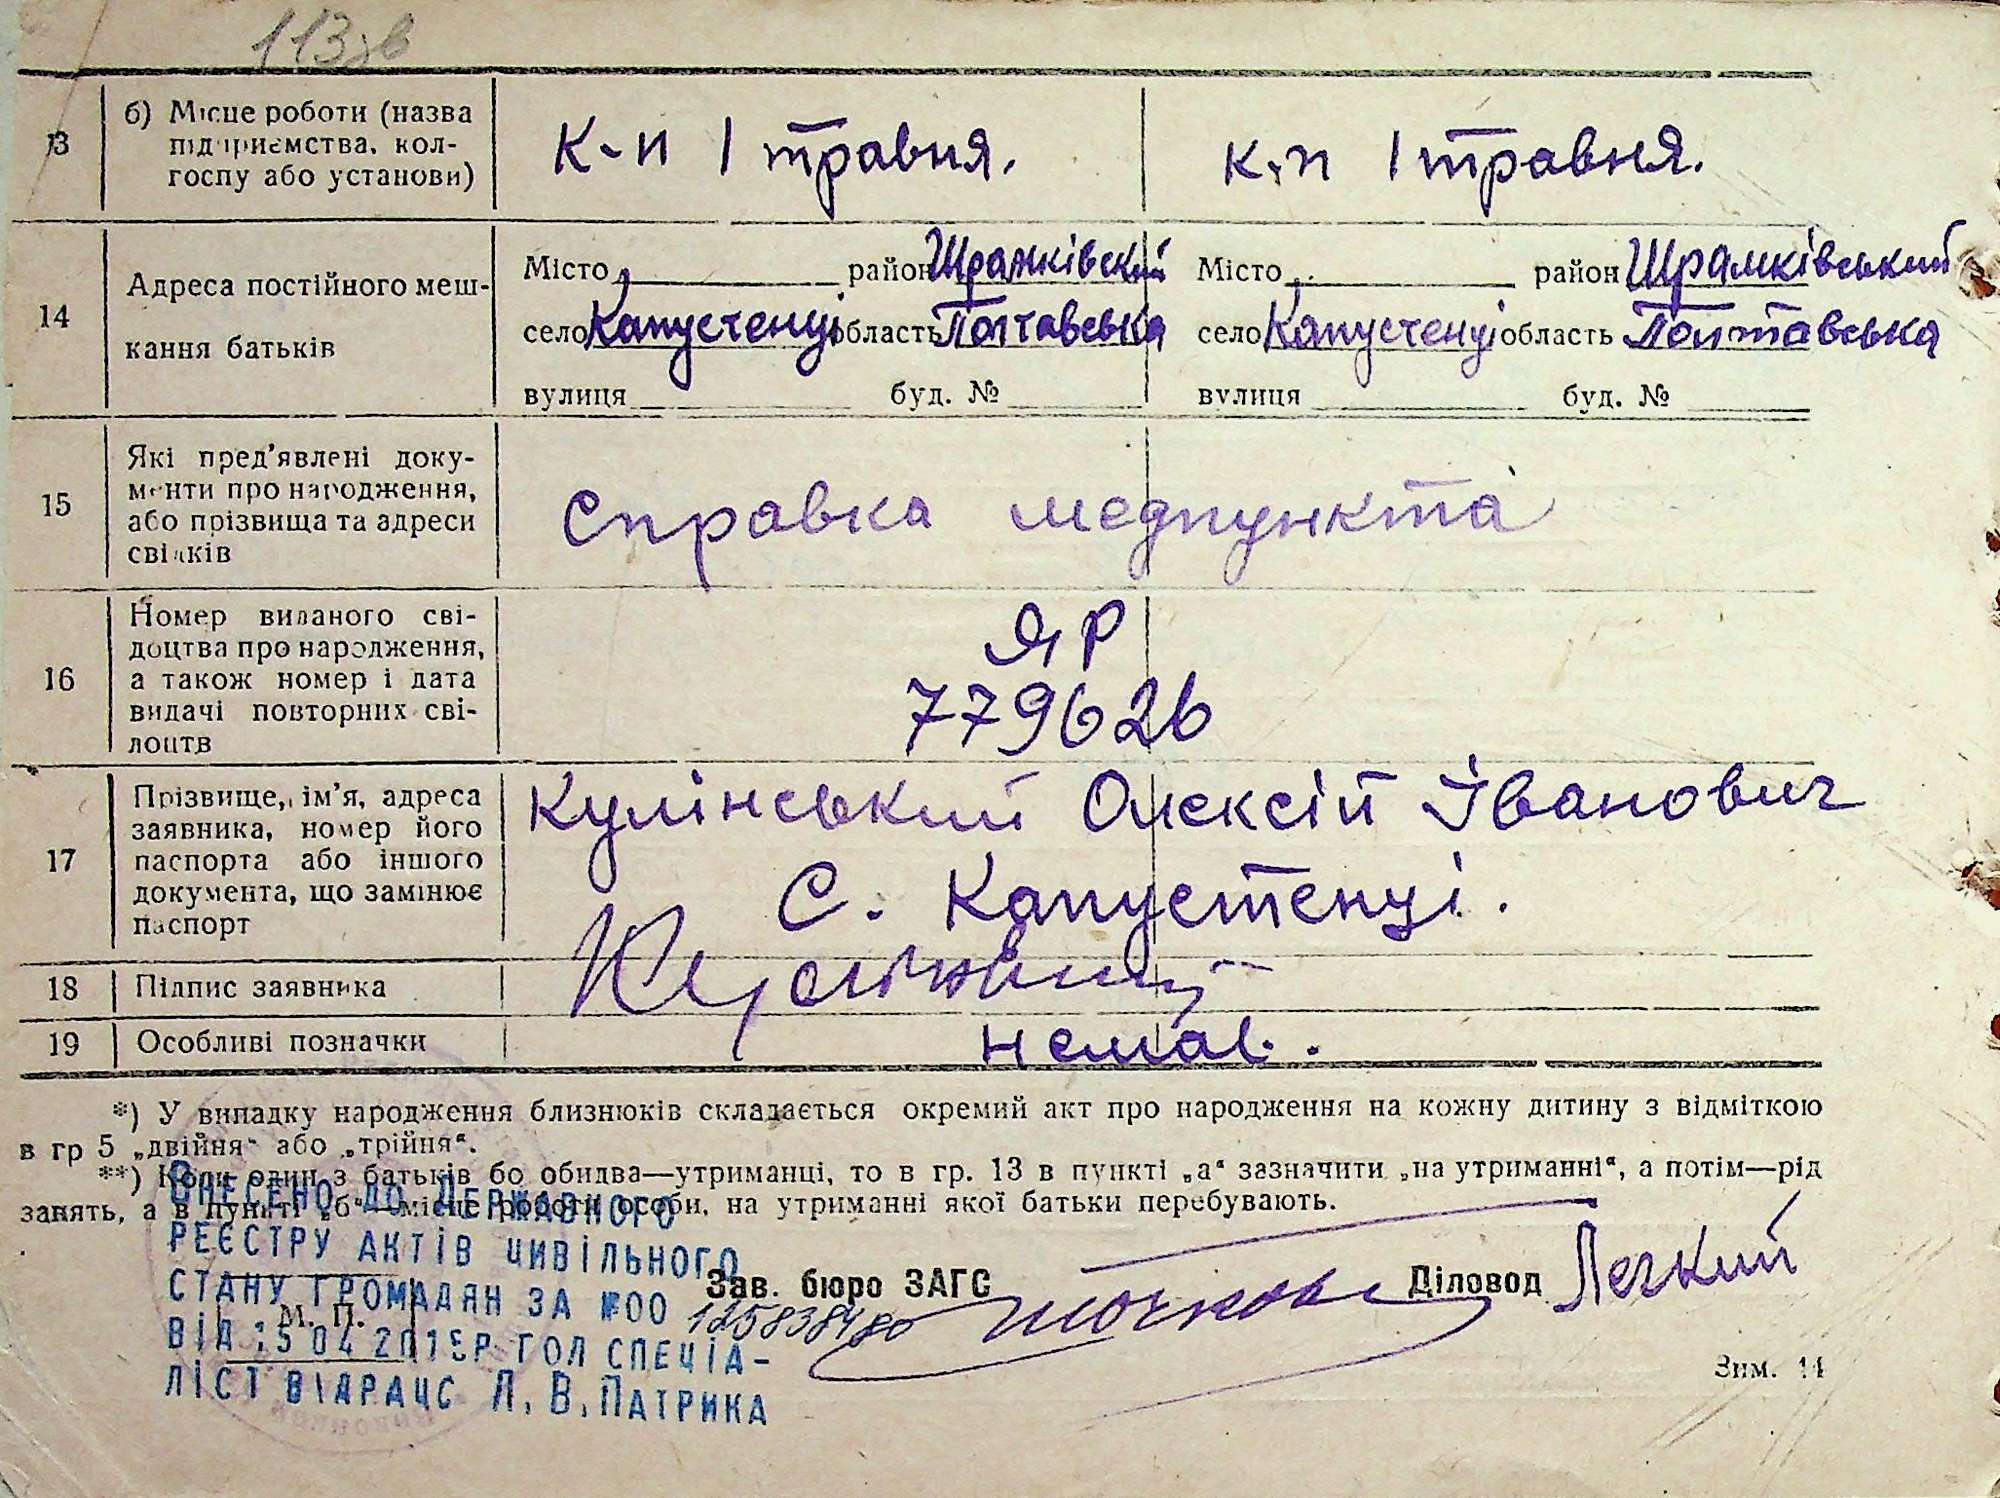 113зв
13
б) Місце роботи (назва
підприємства, кол-
госпу або установи)
к-п 1 травня.
к-п 1 травня.
14
Адреса постійного меш-
кання батьків
Місто район Шрамківский
село Капустенці область Полтавська
вулиця буд. №
Місто район Шрамківський
село Капустенці область Полтавська
вулиця буд. №
15
Які пред'явлені доку-
менти про народження,
або прізвища та адреси
свідків
Справка медпункта
16
Номер виданого сві-
доцтва про народження,
а також номер і дата
видачі повторних сві-
доцтв
ЯР
779626
17
Прізвище, ім'я, адреса
заявника, номер його
паспорта або іншого
документа, що замінює
паспорт
Кулінський Олексій Іванович
С. Капустенці.
18
Підпис заявника
19
Особливі позначки
немає.
*) У випадку народження близнюків складається окремий акт про народження на кожну дитину з відміткою
в гр 5 „двійня“ або „трійня“.
**) Коли один з батьків бо обидва—утриманці, то в гр. 13 в пункті „а“ зазначити „на утриманні“, а потім—рід
занять, а в пункті „б“—місце роботи особи, на утриманні якої батьки перебувають.
Внесено до Державного
реєстру актів цивільного
стану громадян за №00 125838480
від 15 04 2015р гол спеціа-
ліст відрацс Л. В. Патрика
М. П.
Зав. бюро ЗАГС
Діловод Легкий
Зим. 14